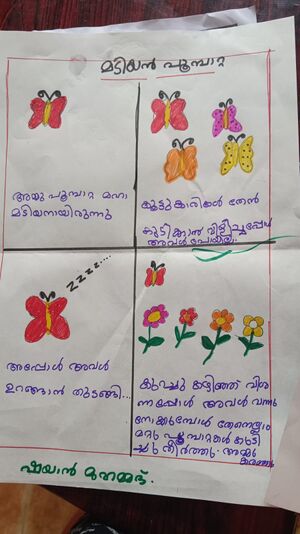 മടിയൻ പൂമ്പാറ്റ
അമ്മു പൂമ്പാറ്റ മഹാ
മടിയനായിരുന്നു
കൂട്ടുകാരികൾ തേൻ
കുടിക്കാൻ വിളിച്ചപ്പോൾ
അവൾ പോയില്ല.
zzzz....
അപ്പോൾ അവൾ
ഉറങ്ങാൻ തുടങ്ങി...
കുറച്ചു കഴിഞ്ഞ് വിശ
ന്നപ്പോൾ അവൾ വന്നു
നോക്കുമ്പോൾ തേനെല്ലാം
മറ്റു പൂമ്പാറ്റകൾ കുടി
ച്ചു തീർത്തു. അമ്മു
കരഞ്ഞു
ഷയാൻ മുഹമ്മദ്.